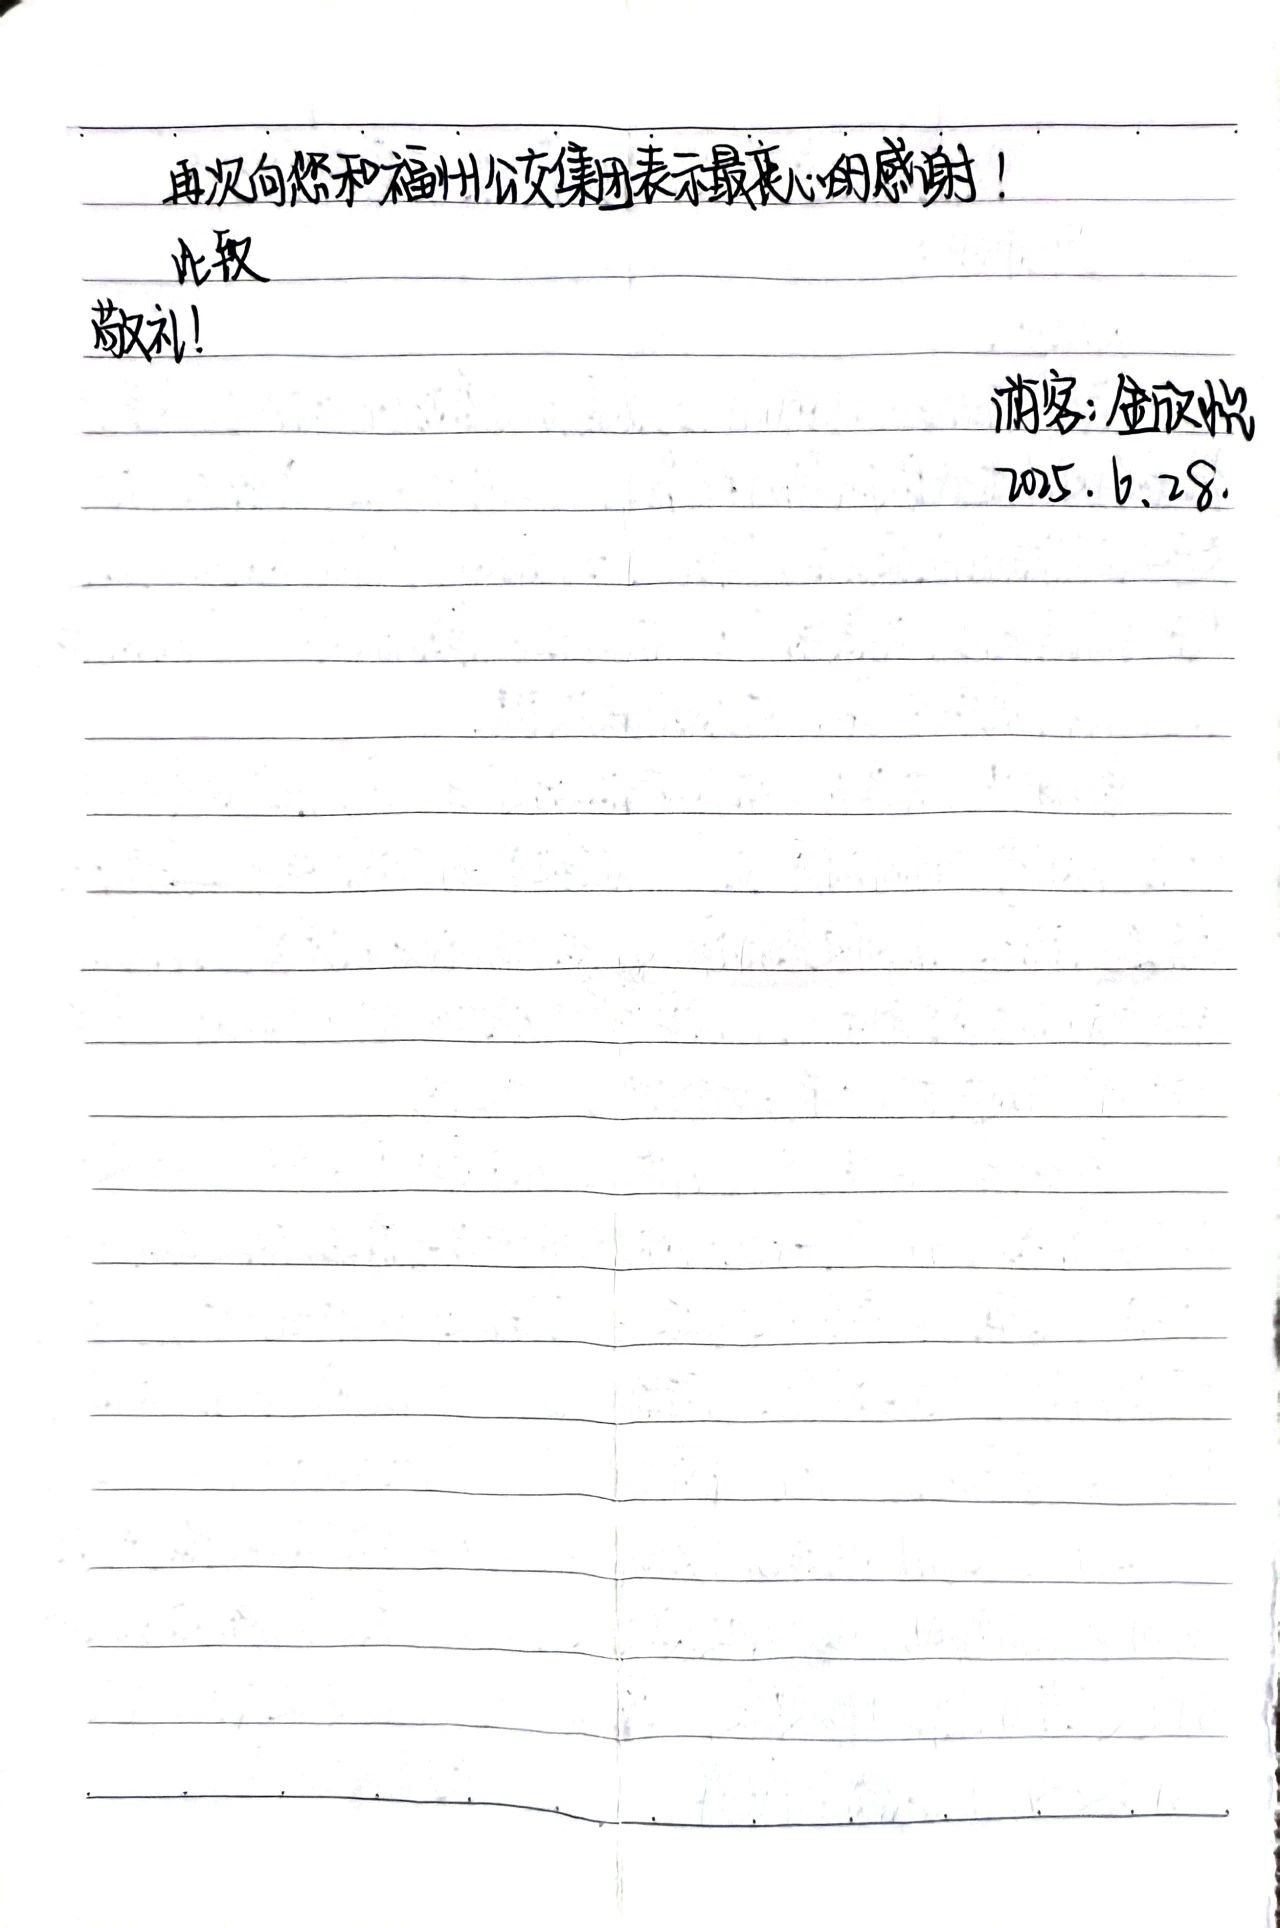 再次向您和福州公交集团表示最衷心的感谢！
此致
敬礼！
游客：金欣悦
2025.6.28.